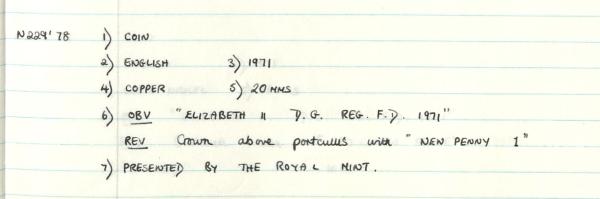 N229'78 1) COIN
2) ENGLISH 3) 1971
4) COPPER 5) 20 MMS
6) OBV "ELIZABETH II D.G. REG. F.D. 1971"
REV Crown above portcullis with "NEW PENNY 1"
7) PRESENTED BY THE ROYAL MINT.